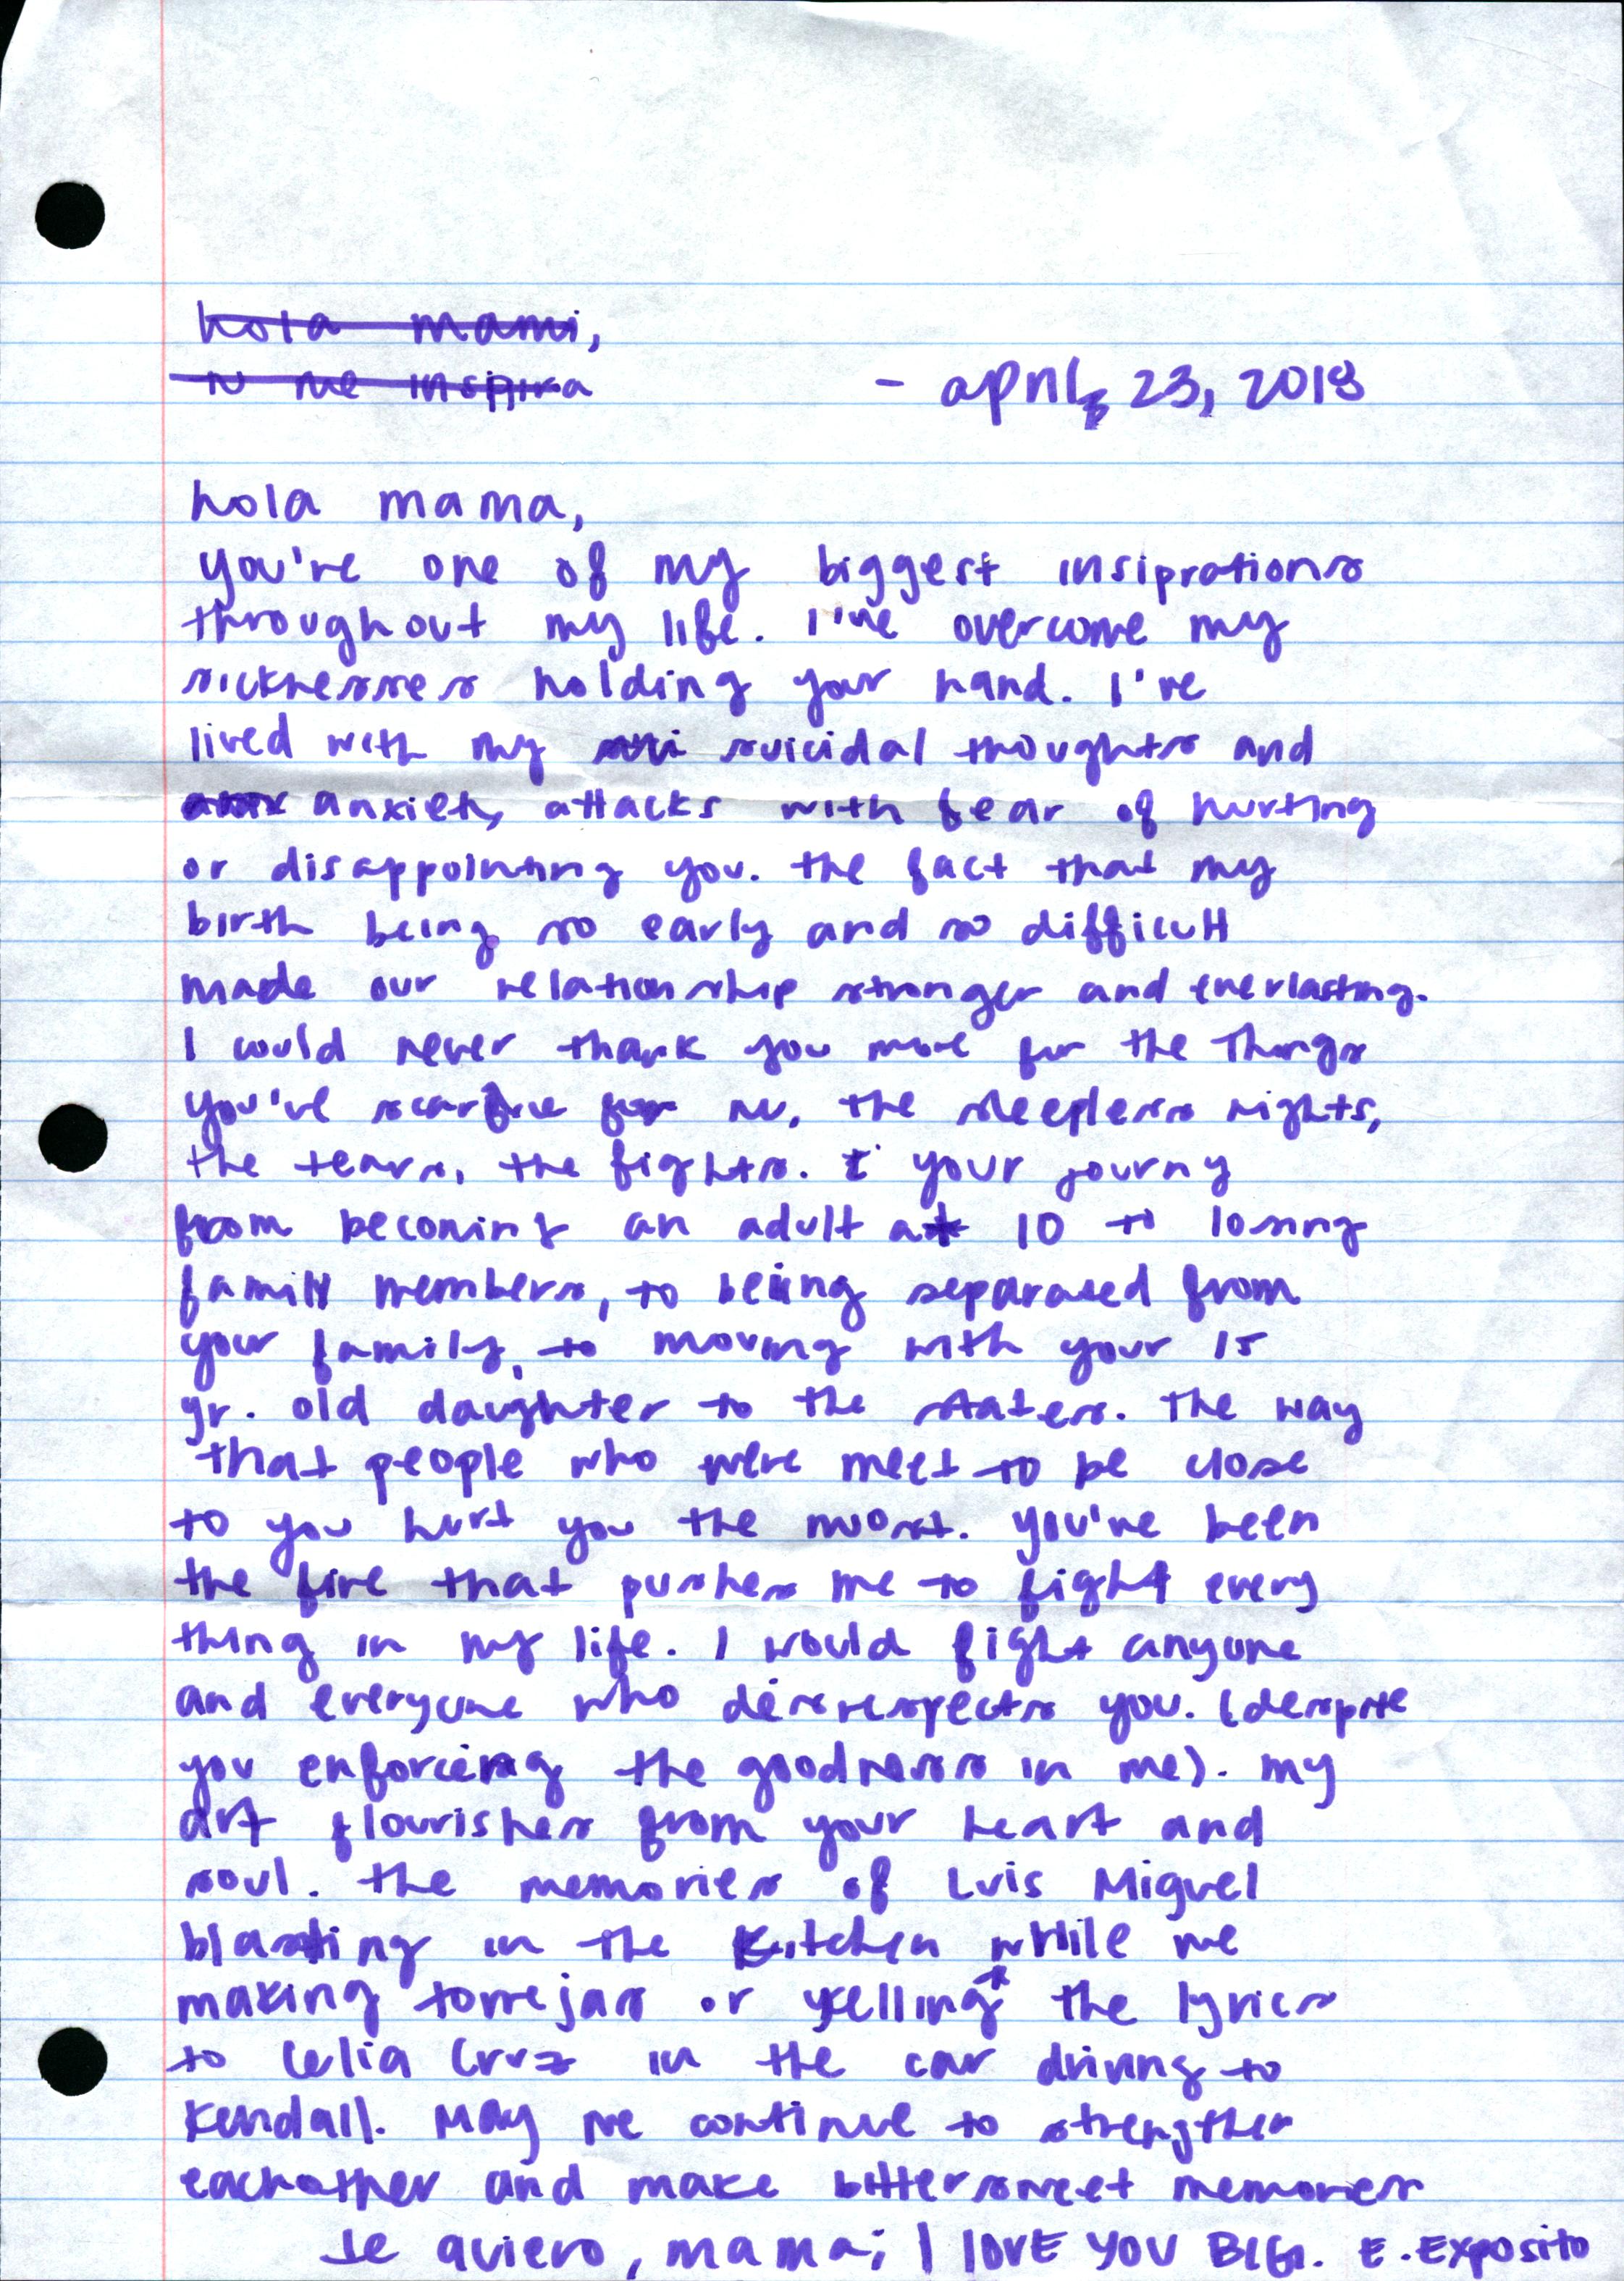 hola mami,
tu me inspira
- april, 23, 2018
hola mama,
you're one of my biggest insiprations
throughout my life. I've overcome my
sicknesses holding your hand. I've
lived with my sui suicidal thoughts and
anx anxiety attacks with fear of hurting
or disappointing you. the fact that my
birth being so early and so difficult
made our relationship stronger and everlasting.
I could never thank you more for the things
you've for me, the sleepless nights,
the tears, the fights. t your journy
from becoming an adult at 10 to losing
family members, to being separated from
your family, to moving with your 15
yr. old daughter to the states. The way
that people who were meet to be close
to you hurt you the most. you've been
the fire that pushes me to fight every
thing in my life. I would fight anyone
and everyone who dissrespects you. (despite
you enforcing the goodness in me). my
art flourishes from your heart and
soul. the memories of Luis Miguel
blasting in the kitchen while we
making torrejas or yelling the lyrics
to Celia Cruz in the car driving to
Kendall. May we continue to strengthen
eachother and make bittersweet memories
te quiero, mama; I LOVE YOU BIG. E. Exposito